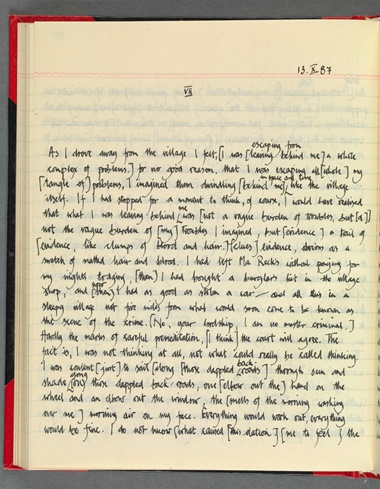 13. X 87
VII
escaping from
As I drove away from the village I felt [I was [leaving behind me] a whole
complex of problems,] for no good reason, that I was escaping all [whole] my
[tangle of] problems, I imagined them dwindling [behind me] like the village
itself. If I had stopped for a moment to think, of course, I would have realised
that what I was leaving behind me was [not a vague burden of troubles, but [a]]
not the vague burden of [my] troubles I imagined, but [evidence] a trail of
[evidence, like clumps of blood and hair.] [clues] evidence, obvious as a
snatch of matted hair and blood. I had left Ma Reck's without paying for
my night's lodging, [then] I had bought a burglar's kit in the village
shop, and [then] I had as good as stolen a car — and all this in a
sleepy village not five miles from what would soon come to be known as
the scene of the crime. [No, your lordship, I am no master criminal.]
Hardly the marks of careful premeditation, [I think] the court will agree. The
fact is, I was not thinking at all, not what could really be called thinking.
back
I was content [just] to sail [along [those dappled] [roads] ] through sun and
along
shade [on] those dappled back roads, one [elbow out the] hand on the
wheel and an elbow out the window, the [smells of the morning washing
over me] morning air on my face. Everything would work out, everything
would be fine. I do not know [what caused [this elation] ] [me to feel] the